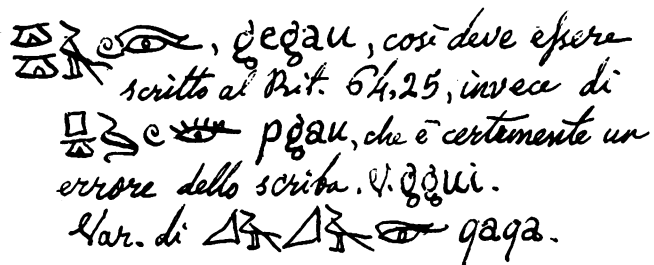 , g̥eg̥au, così deve essere
scritto al Rit. 64,25, invece di
pg̥au, che è certamente un
errore dello scriba. V. g̥g̥ui.
Var. di qaqa.